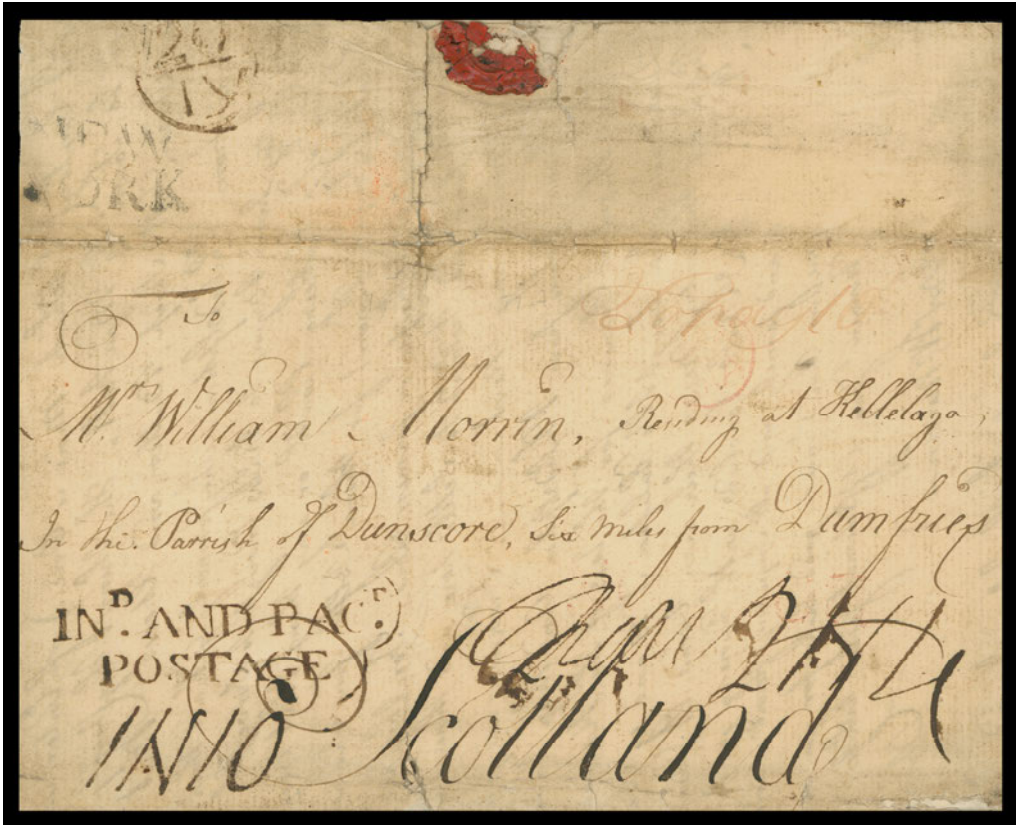 20
IY
NEW
YORK
To
Mr. William Morrin, Residing at Kellelago,
In the Parrish of Dunscore, Six miles from Dumfries
IND. AND PACT.
POSTAGE
1N10
Scotland